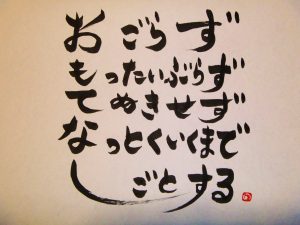 おごらず
もったいぶらず
てぬきせず
なっとくいくまで
しごとする